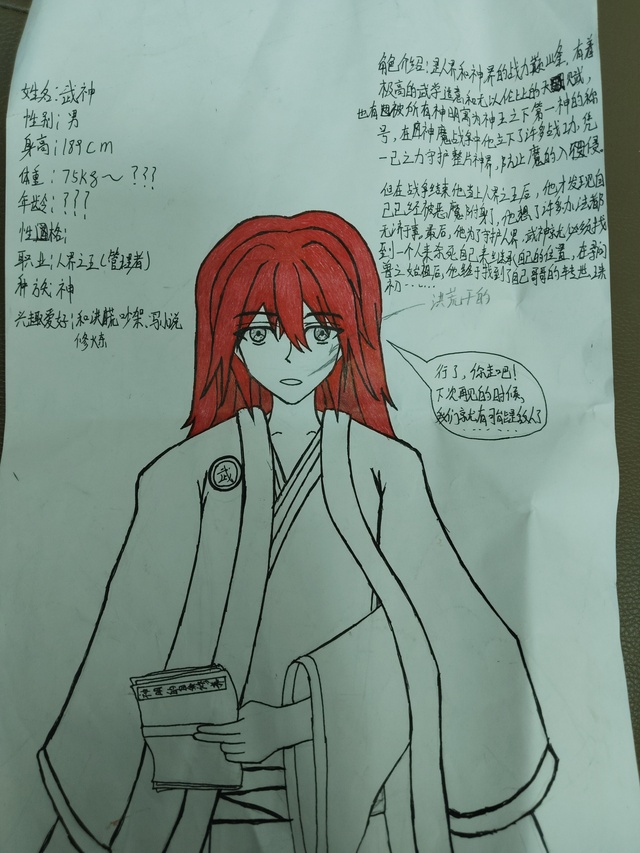 姓名:武神
性别:男
身高:189cm
体重:75kg~???
年龄:???
性格:
职业:人界之王(管理者)
种族:神
兴趣爱好:和洪荒吵架.写小说
修大东
角色介绍:是人界和神界的战力巅峰.有着
极高的武学造意和无以伦比上的天赋,
也有被所有神明寓为神王之下第一神的称
号,在神魔战争中他立下了许多战功,凭
一己之力守护整片神界,防止魔的入侵.
但在战争结束他当上人界之王后,他才发现自
己已经被恶魔附身了,他想了许多办法都
无济于事.最后,他为了守护人界,武神
到一个人来杀死自己来继承自己的位置,在
后,他终于找到了自己哥哥的转世.洪
初……
洪荒干的
行了,你走吧!
下次再见的时候,
我们就有可能是敌人了
……
武